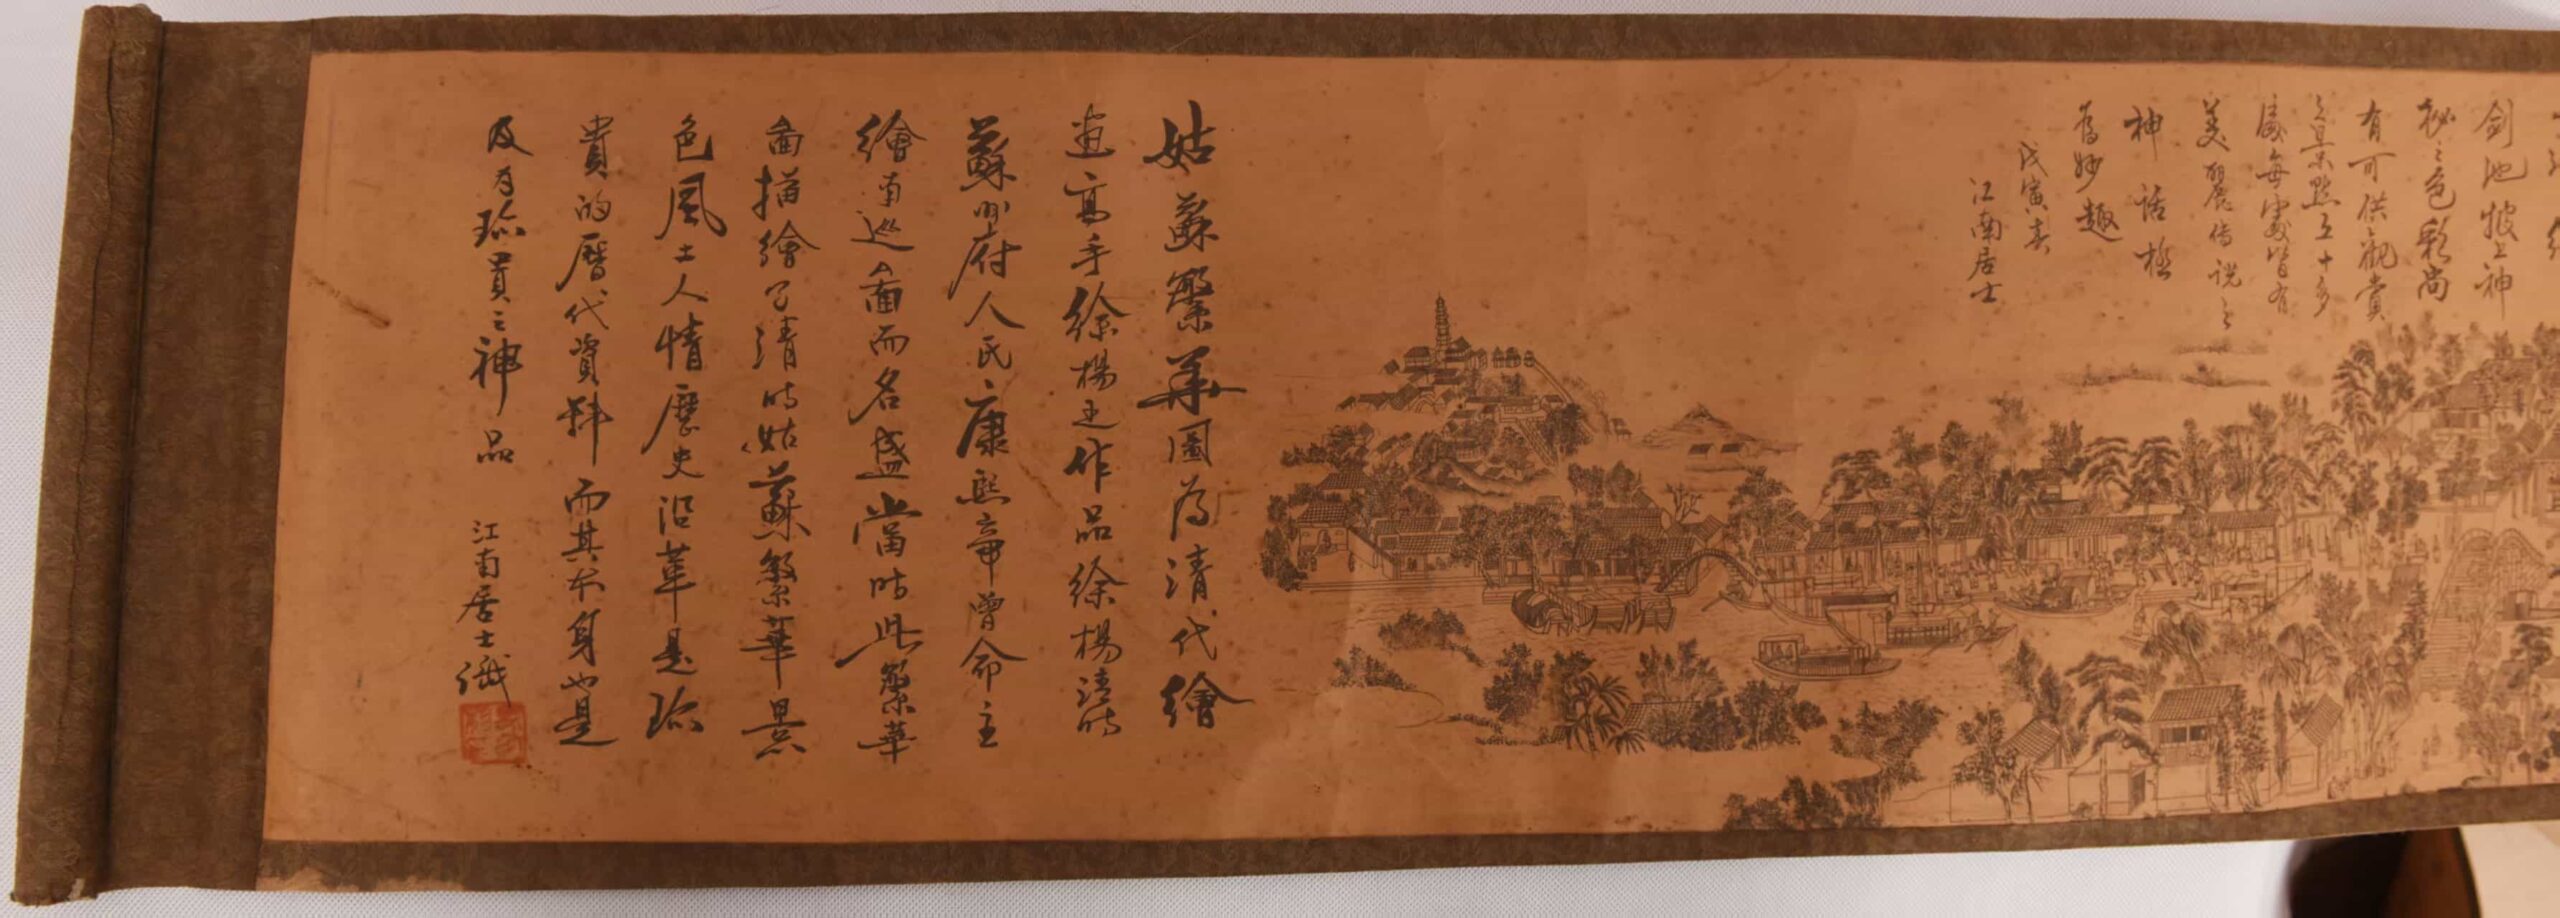 剑池陂上神
秘之色彩尚
有可供觀賞
之景點五十多
處每處皆有
美麗傳説之
神話極
為妙趣
戊寅春
江南居士
姑蘇繁華圖為清代繪
畫高手徐楊之作品徐楊清時
蘇州府人民康熙帝曾命主
繪南巡圖而名盛當时此繁華
圖描繪了清时姑蘇繁華景
色風土人情歷史沿革是珍
貴的曆代資料而其本身也是
及为珍貴之神品
江南居士識